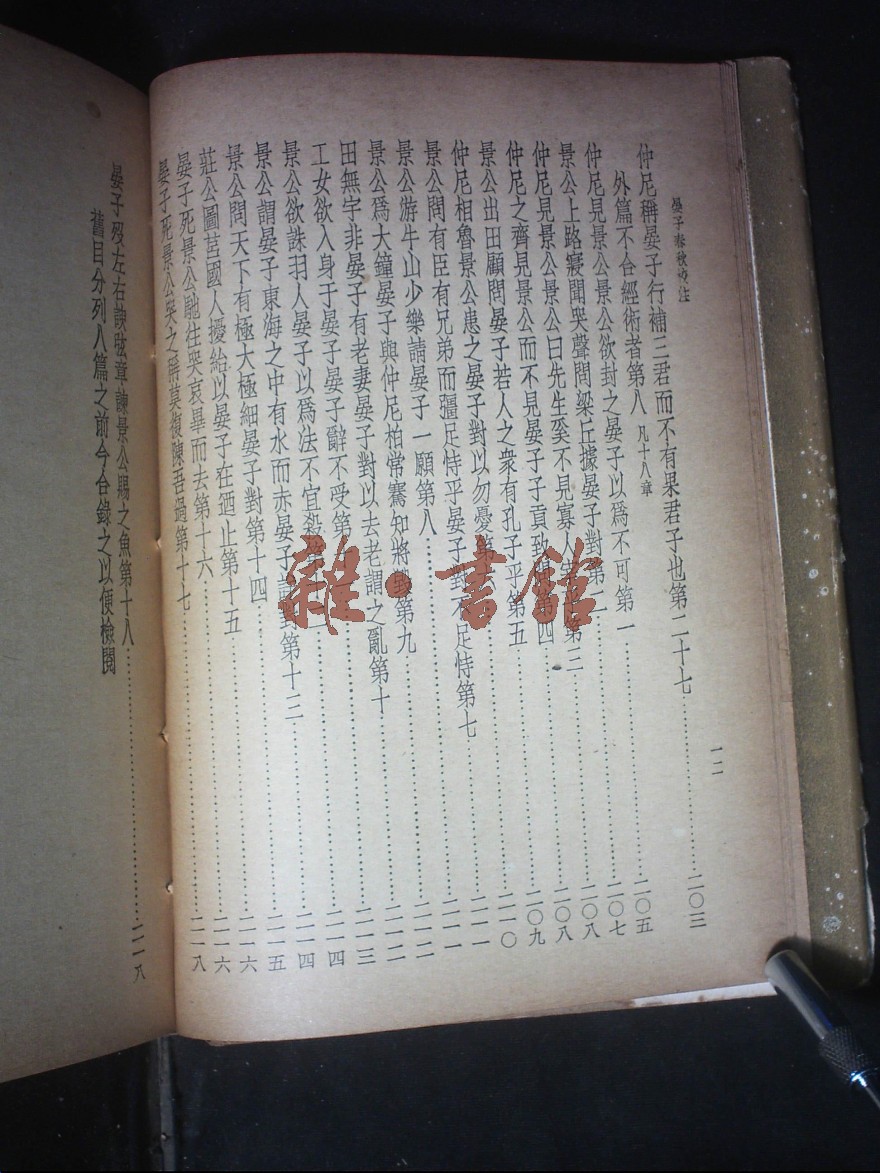 晏子春秋校注
一二
仲尼稱晏子行補三君而不有果君子也第二十七……二〇三
外篇不合經術者第八 凡十八章
仲尼見景公景公欲封之晏子以爲不可第一……二〇五
景公上路寢聞哭聲問梁丘據晏子對第二……二〇七
仲尼見景公景公曰先生奚不見寡人宰乎第三……二〇八
仲尼之齊見景公而不見晏子子貢致問第四……二〇八
景公出田顧問晏子若人之衆有孔子乎第五……二〇九
仲尼相魯景公患之晏子對以勿憂第六……二一〇
景公問有臣有兄弟而彊足恃乎晏子對不足恃第七……二一一
景公游牛山少樂請晏子一願第八……二一一
景公爲大鐘晏子與仲尼柏常騫知將毀第九……二一二
田無宇非晏子有老妻晏子對以去老謂之亂第十……二一二
工女欲入身于晏子晏子辭不受第……二一三
景公欲誅羽人晏子以爲法不宜殺第十二……二一四
景公謂晏子東海之中有水而赤晏子詳對第十三……二一四
景公問天下有極大極細晏子對第十四……二一五
莊公圖莒國人擾紿以晏子在迺止第十五……二一六
晏子死景公馳往哭哀畢而去第十六……二一六
晏子死景公哭之稱莫復陳吾過第十七……二一八
晏子歿左右諛弦章諫景公賜之魚第十八……二一八
舊目分列八篇之前今合錄之以便檢閱
雜·書館